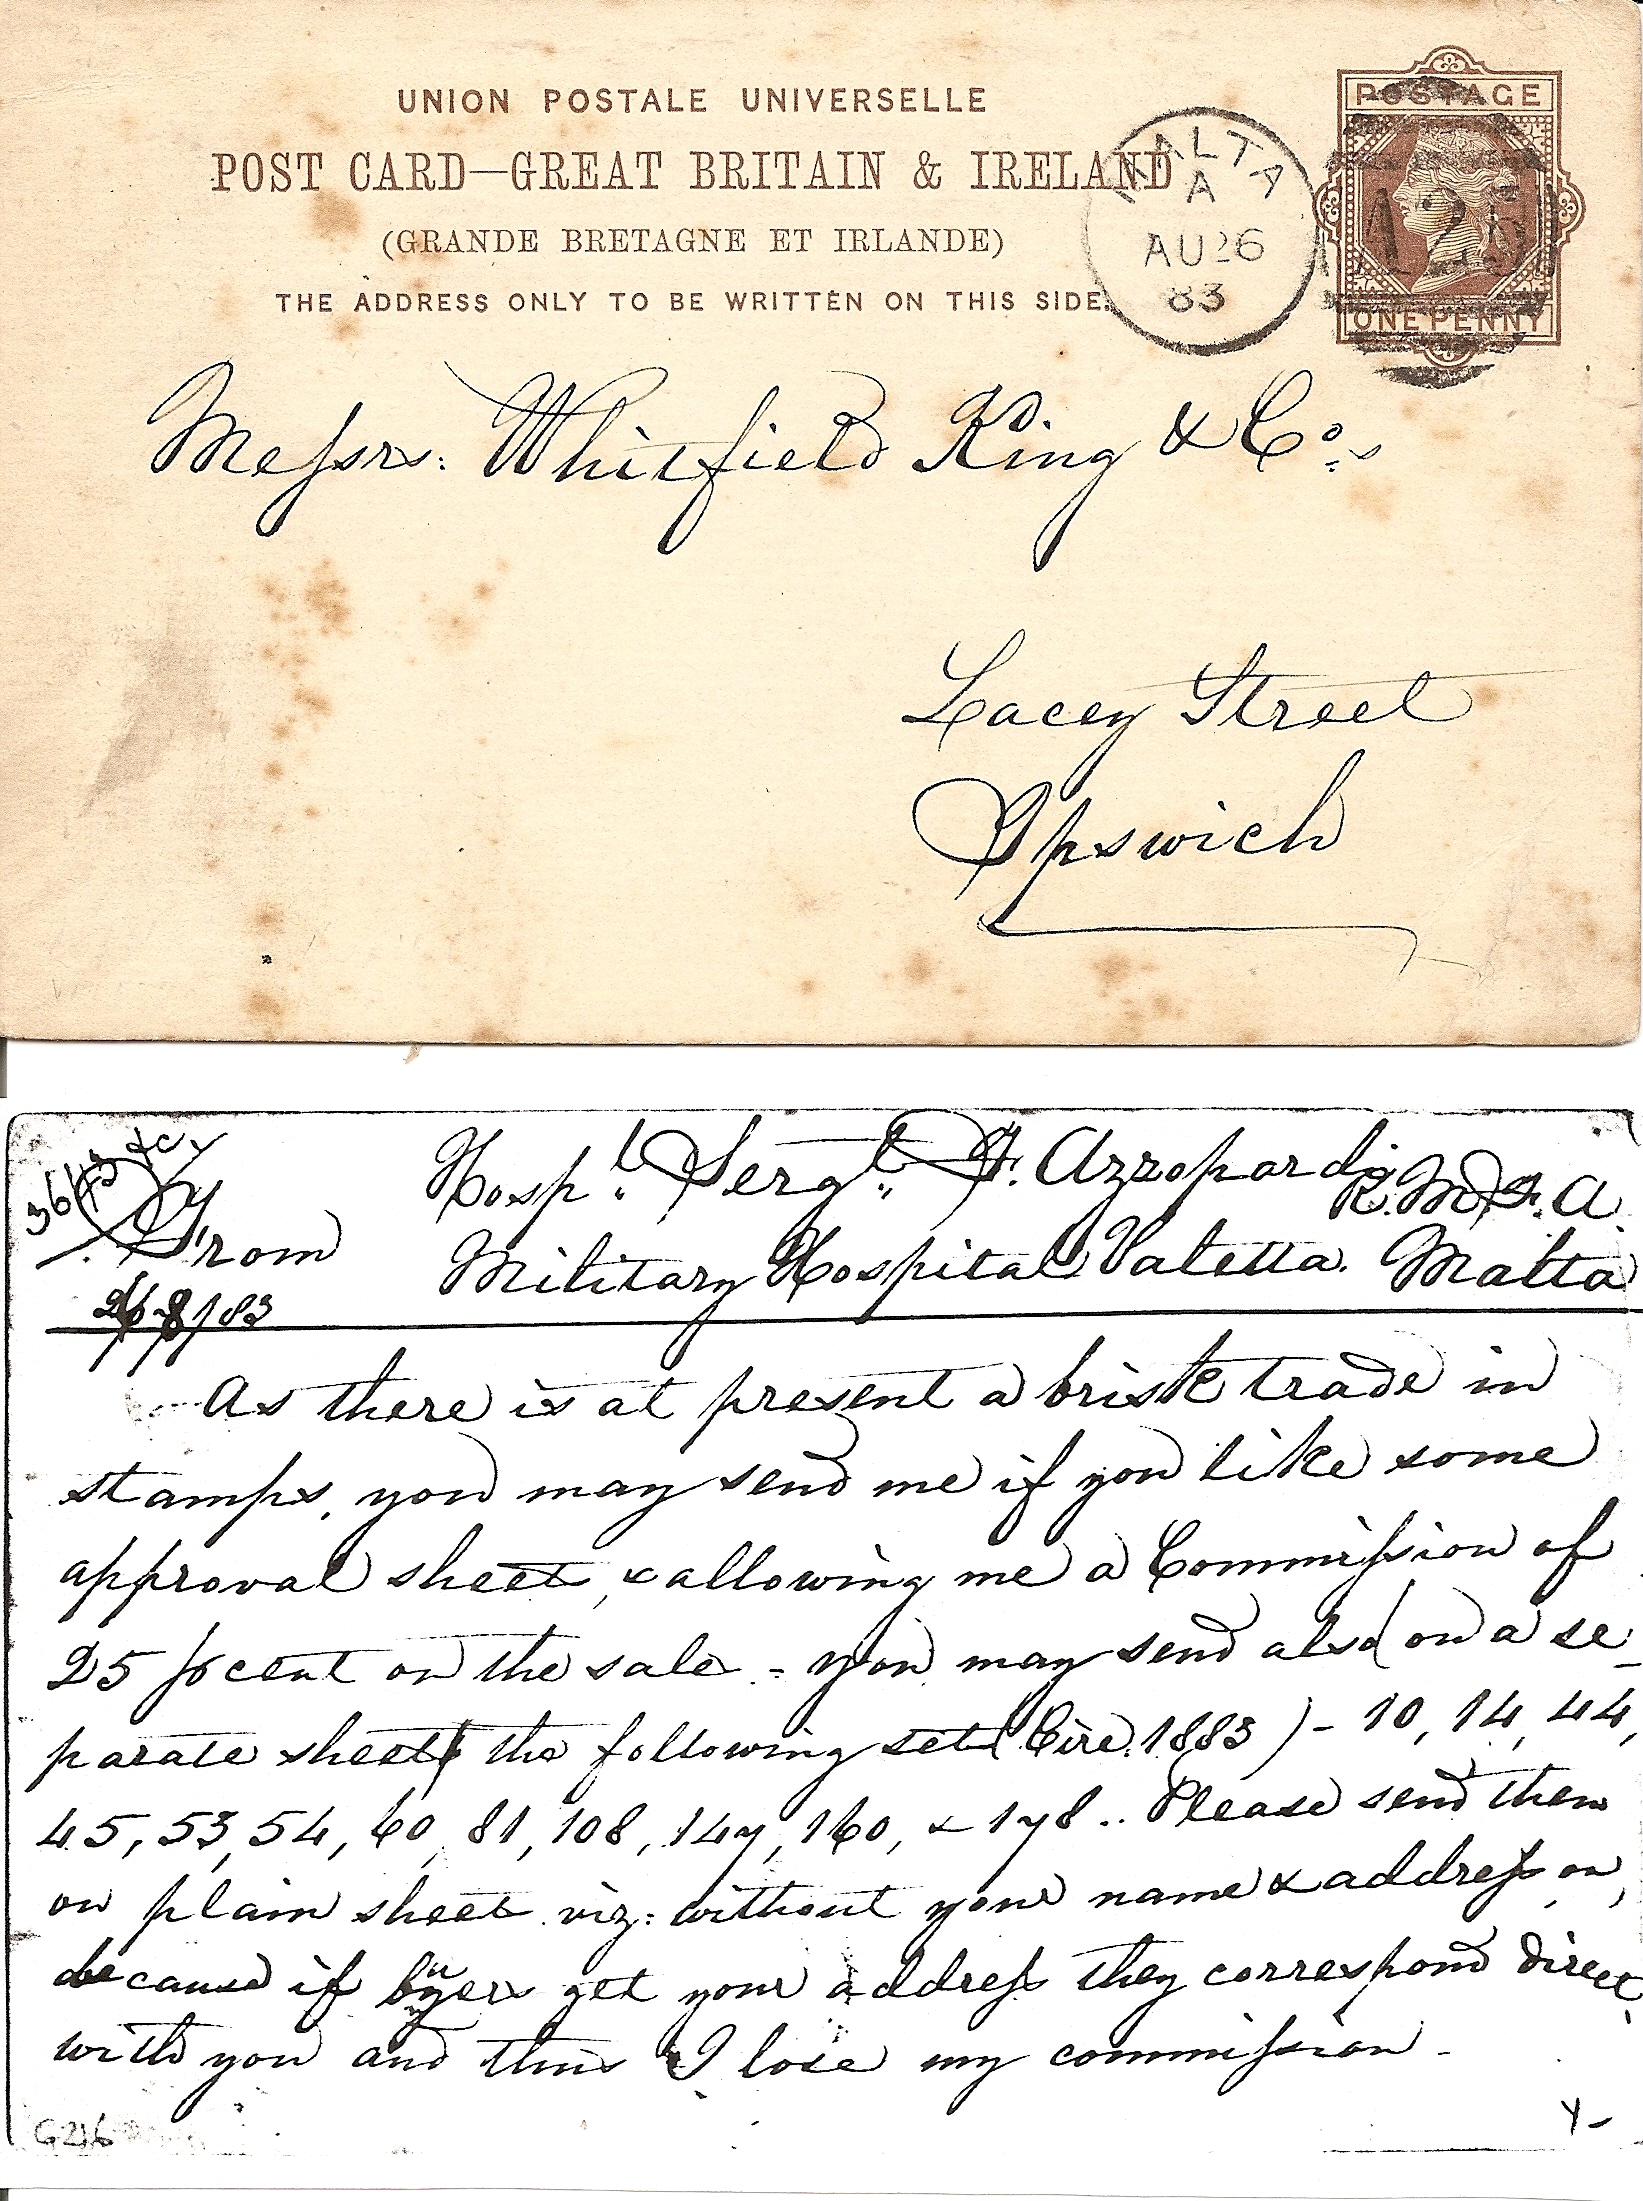 UNION POSTALE UNIVERSELLE
POST CARD—GREAT BRITAIN & IRELAND
(GRANDE BRETAGNE ET IRLANDE)
THE ADDRESS ONLY TO BE WRITTEN ON THIS SIDE.
MALTA
A
AU 26
83
POSTAGE
A25
ONE PENNY
Messrs: Whitfield King & Co.s
Lacey Street
Ipswich
Hospl. Sergt. F. Azzopardi R.M.F.A.
From Military Hospital Valetta. Malta
26/8/83
As there is at present a brisk trade in
stamps, you may send me if you like some
approval sheets, & allowing me a Commission of
25 p cent on the sale - you may send also (on a se-
parate sheet) the following sets (Circ. 1883) - 10, 14, 44,
45, 53, 54, 60, 81, 108, 147, 160, & 178.. Please send them
on plain sheets viz: without your name & address on,
because if buyers get your address they correspond direct
with you and thus I lose my commission -
G246